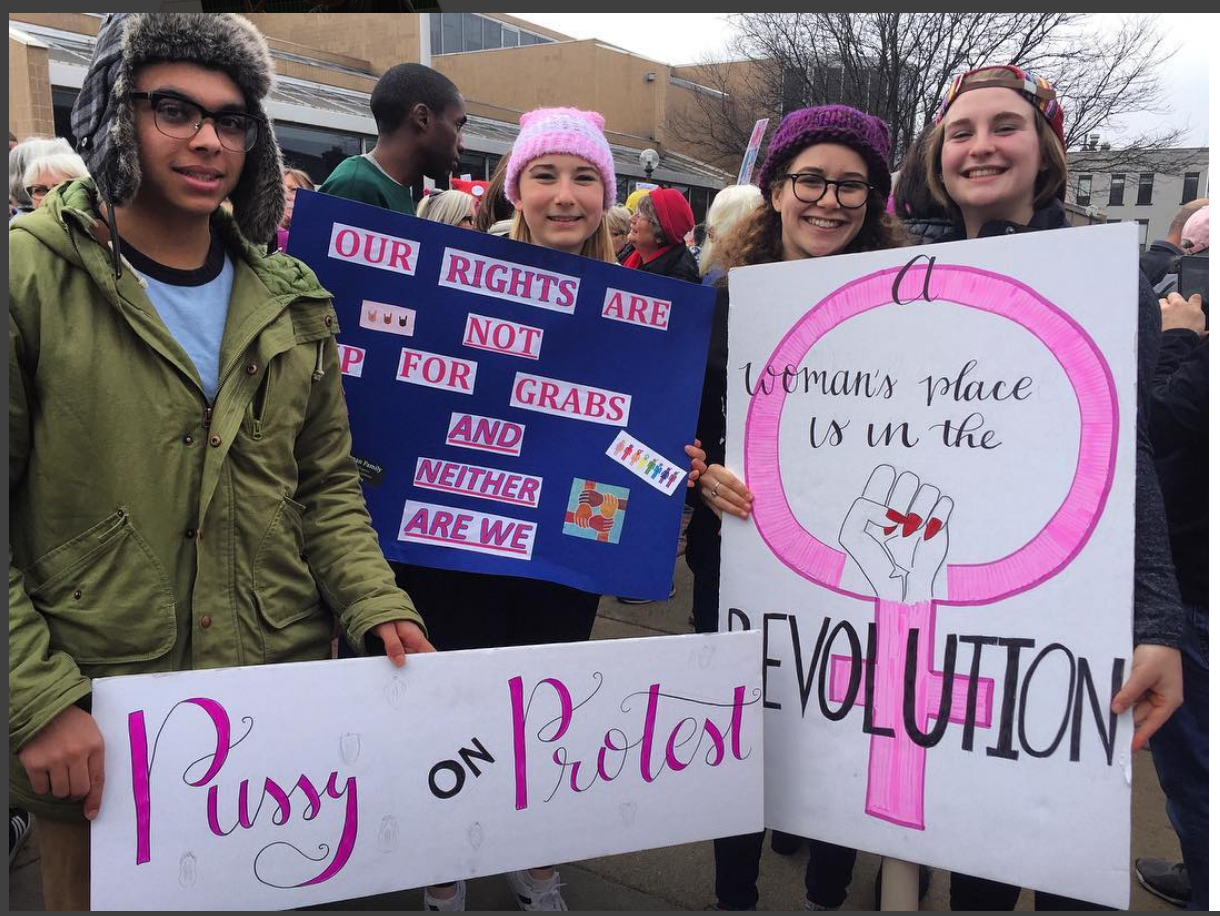 OUR RIGHTS ARE
NOT
P FOR GRABS
AND
NEITHER
ARE WE
man Family
a
woman's place
is in the
REVOLUTION
Pussy ON Protest